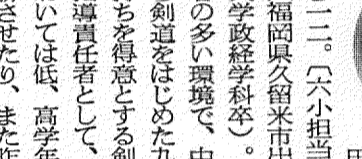 二二。〔六小担当
福岡県久留米市出
学政経学科卒）。
の多い環境で、中
剣道をはじめた九
ちを得意とする剣
導責任者として、
いては低、高学年